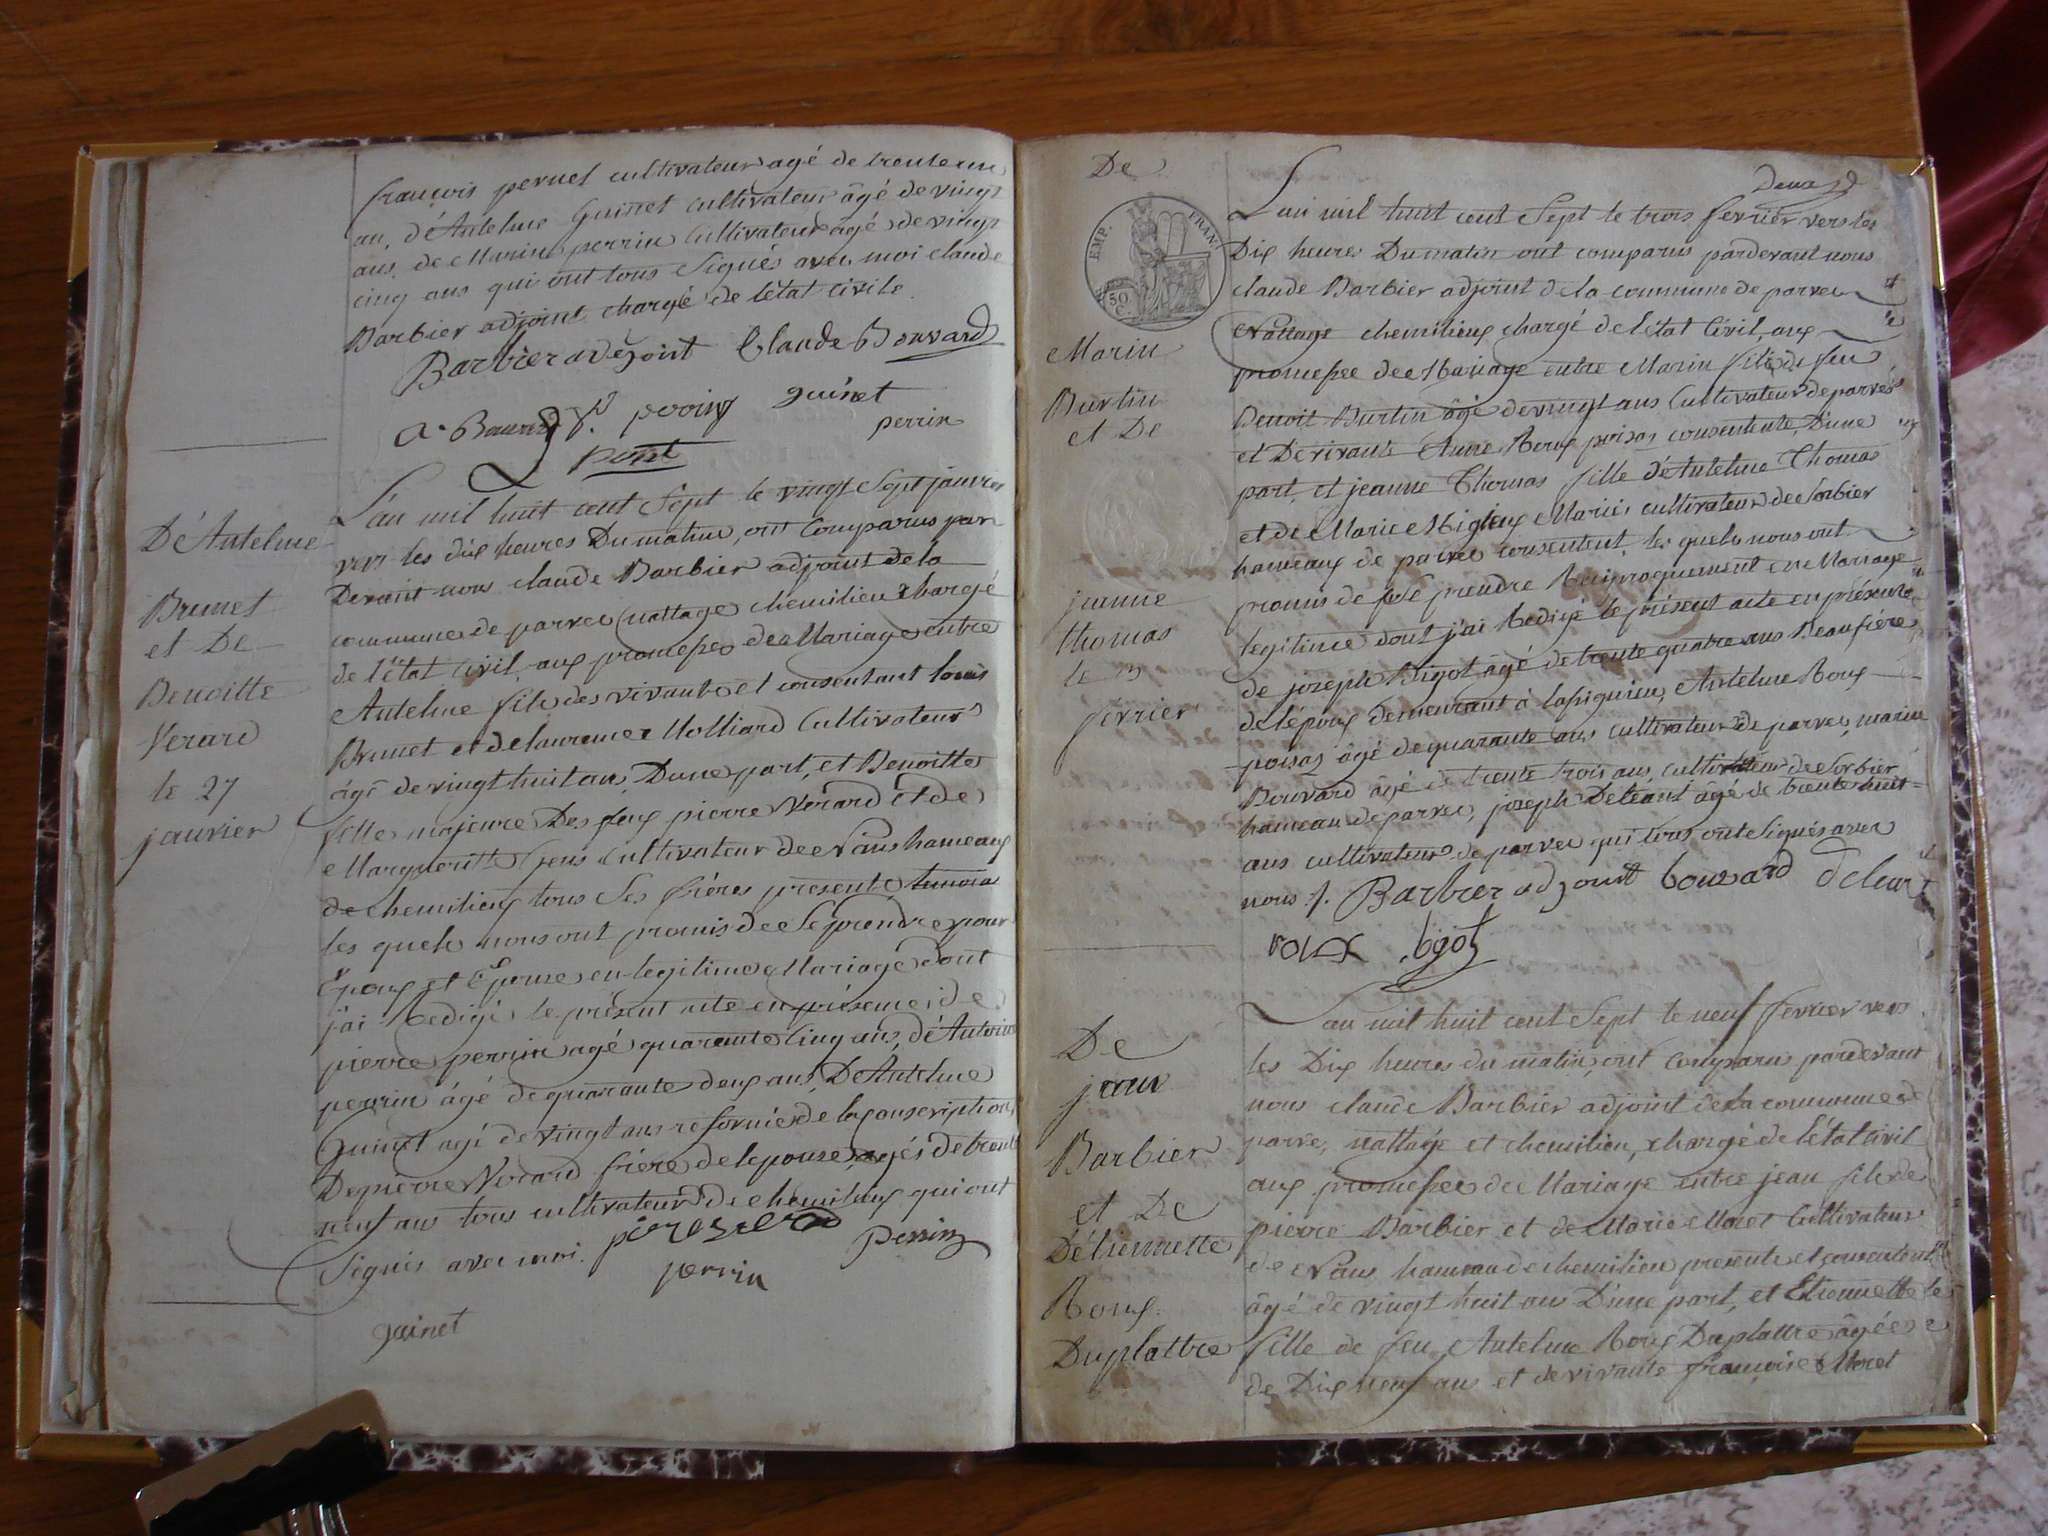 françois pernet cultivateur agé de trente un
an, d'Antelme Guinet cultivateur âgé de vingt
ans, de Marin perrin Cultivateur âgé de vingt
cinq ans qui ont tous Signés avec moi claude
Barbier adjoint chargé de létat Civile.
Barbier adejoint Claude Bouvard
guinet
perrin
D'Antelme
Brunet
et De
Benoitte
Verard
le 27
janvier
L'an mil huit cent Sept le vingt Sept janvier
vers les dix heures Du matin, ont Comparus par
Devant nous claude Barbier adjoint de la
commune de parves nattage chemilieu chargé
de l'état civil, aux promesses de Mariage entre
Antelme fils des vivants et consentant louis
Brunet et de laurence Molliard Cultivateur
âgé de vingt huit an, D'une part, et Benoitte
fille majeure Des feux pierre Verard et de
Margueritte cultivateur de Nans hameaux
de chemilieux tous Ses frères presents
les quels nous ont promis de Se prendre pour
Epoux et Epouse en legitime Mariage dont
j'ai Redigé le présent acte en présence de
pierre perrin agé quarante Cinq ans, d'Antoine
perrin âgé de quarante deux ans, D'Antelme
Guinet agé de vingt ans reformé de la conscription,
De pierre Verard frère de lepouse, agés de trente
neuf ans tous cultivateurs de chemilieux qui ont
Signés avec moi.
perrin
Perrin
guinet
De
EMP. FRAN.
50 C.
Marin
Burtin
et De
jeanne
thomas
le 3
février
L'an mil huit cent Sept le trois fevrier vers les
Dix heures Du matin ont comparus pardevant nous
claude Barbier adjoint de la commune de parves
Nattage chemilieux chargé de l'état Civil, aux
promesses de Mariage entre Marin fils de feu
Benoit Burtin âgé de vingt ans Cultivateur de parves
et De vivante Anne Roux poisaz consentente, D'une
part, et jeanne Thomas fille d'Antelme Thomas
et de Marie Migieux Mariés cultivateur de Sorbier
hameaux de parves consentent, les quels nous ont
promis de se prendre Reciproquement en Mariage
legitime dont j'ai Redigé le présent acte en présence
de joseph Bigot âgé de trente quatre ans Beaufrère
de l'époux demeurant à Antelme Roux
poisaz âgé de quarante ans cultivateur de parves, marin
Bouvard âgé de trente trois ans, cultivateur de Sorbier
hameau de parves, joseph Deleant âgé de trente huit
ans cultivateur de parves qui tous ont Signés avec
nous ./. Barbier adjouit bouvard
roux bigot
De
jean
Barbier
et De
D'étiennette
Roux
Duplattre
L'an mil huit cent Sept le neuf fevrier vers
les Dix heures du matin, ont Comparu pardevant
nous claude Barbier adjoint de la commune de
parve, nattage et chemilieu, chargé de l'état Civil
aux promesses de Mariage entre jean fils de
pierre Barbier et de Marie Moret Cultivateur
de Nans hameau de chemilieu presents et consentent
âgé de vingt huit ans D'une part, et Etiennette
fille de feu Antelme Roux Duplattre âgée
de Dix neuf ans et de vivante françoise Moret